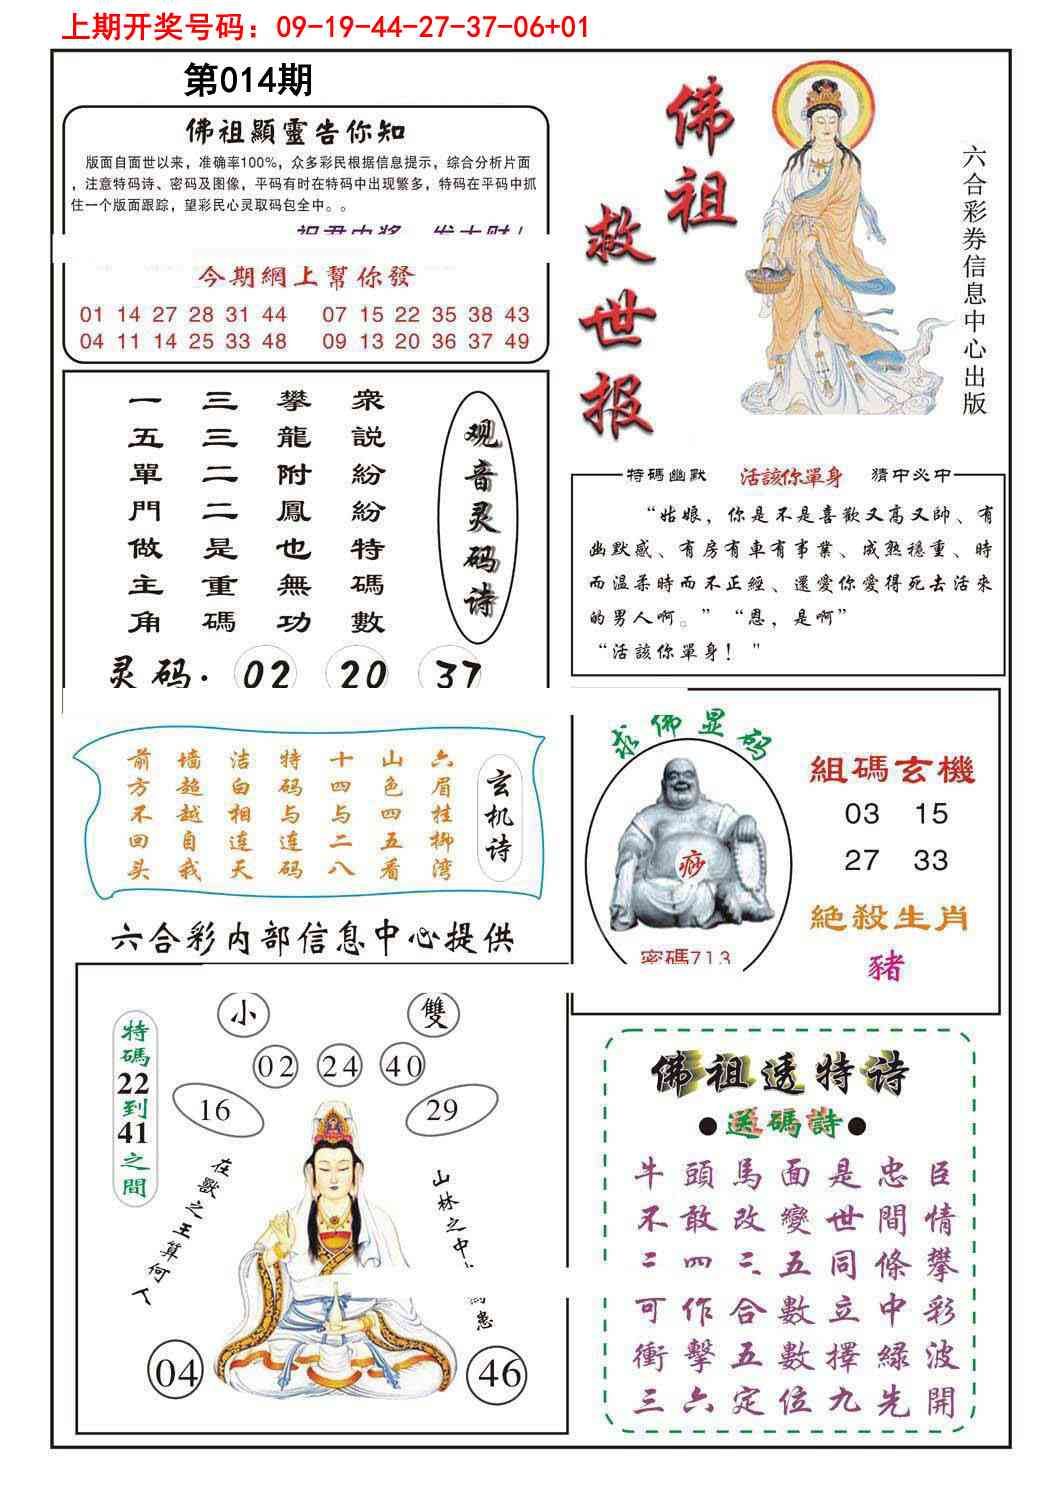 上期开奖号码：09-19-44-27-37-06+01
第014期
佛祖顯靈告你知
版面自面世以来，准确率100%，众多彩民根据信息提示，综合分析片面
，注意特码诗、密码及图像，平码有时在特码中出现繁多，特码在平码中抓
住一个版面跟踪，望彩民心灵取码包全中。。
今期網上幫你發
01 14 27 28 31 44 07 15 22 35 38 43
04 11 14 25 33 48 09 13 20 36 37 49
佛祖
救世报
六合彩券信息中心出版
观音灵码诗
衆説紛紛特碼數
攀龍附鳳也無功
三三二二是重碼
一五單門做主角
灵码.
02 20 37
特碼幽默 活該你單身 猜中必中
“姑娘，你是不是喜歡又高又帥、有
幽默感、有房有車有事業、成熟穩重、時
而温柔時而不正經、還愛你愛得死去活來
的男人啊。”“恩，是啊”
“活該你單身！"
玄机诗
六眉桂柳湾
山色四五看
十四与二八
特码与连码
洁白相连天
墙超越自我
前方不回头
求佛显码
痧
密碼713
組碼玄機
03 15
27 33
絶殺生肖
豬
六合彩内部信息中心提供
特碼22到41之間
小 雙
02 24 40
16 29
在獸之王算何人
山林之中
為患
04 46
佛祖透特诗
●送碼詩●
牛頭馬面是忠臣
不敢改變世間情
二四二五同條攀
可作合數立中彩
衝擊五數擇緑波
三六定位九先開